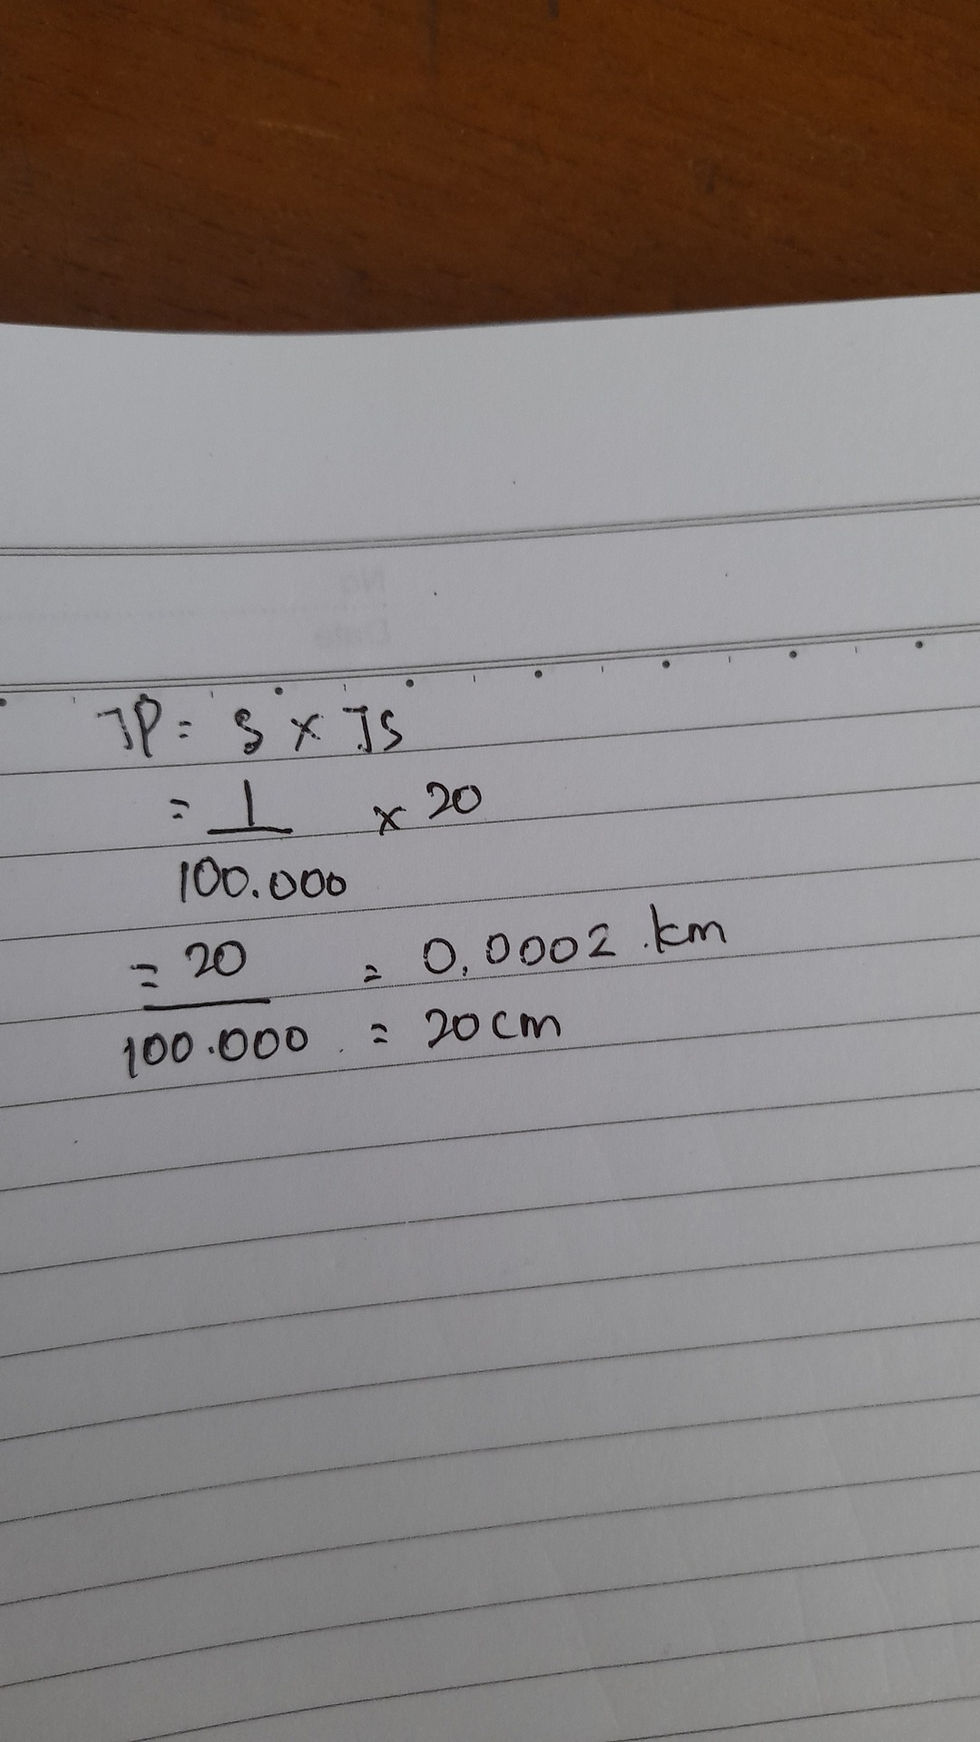 JP = S × JS
= 1/100.000 × 20
= 20/100.000 = 0,0002 km
= 20 cm